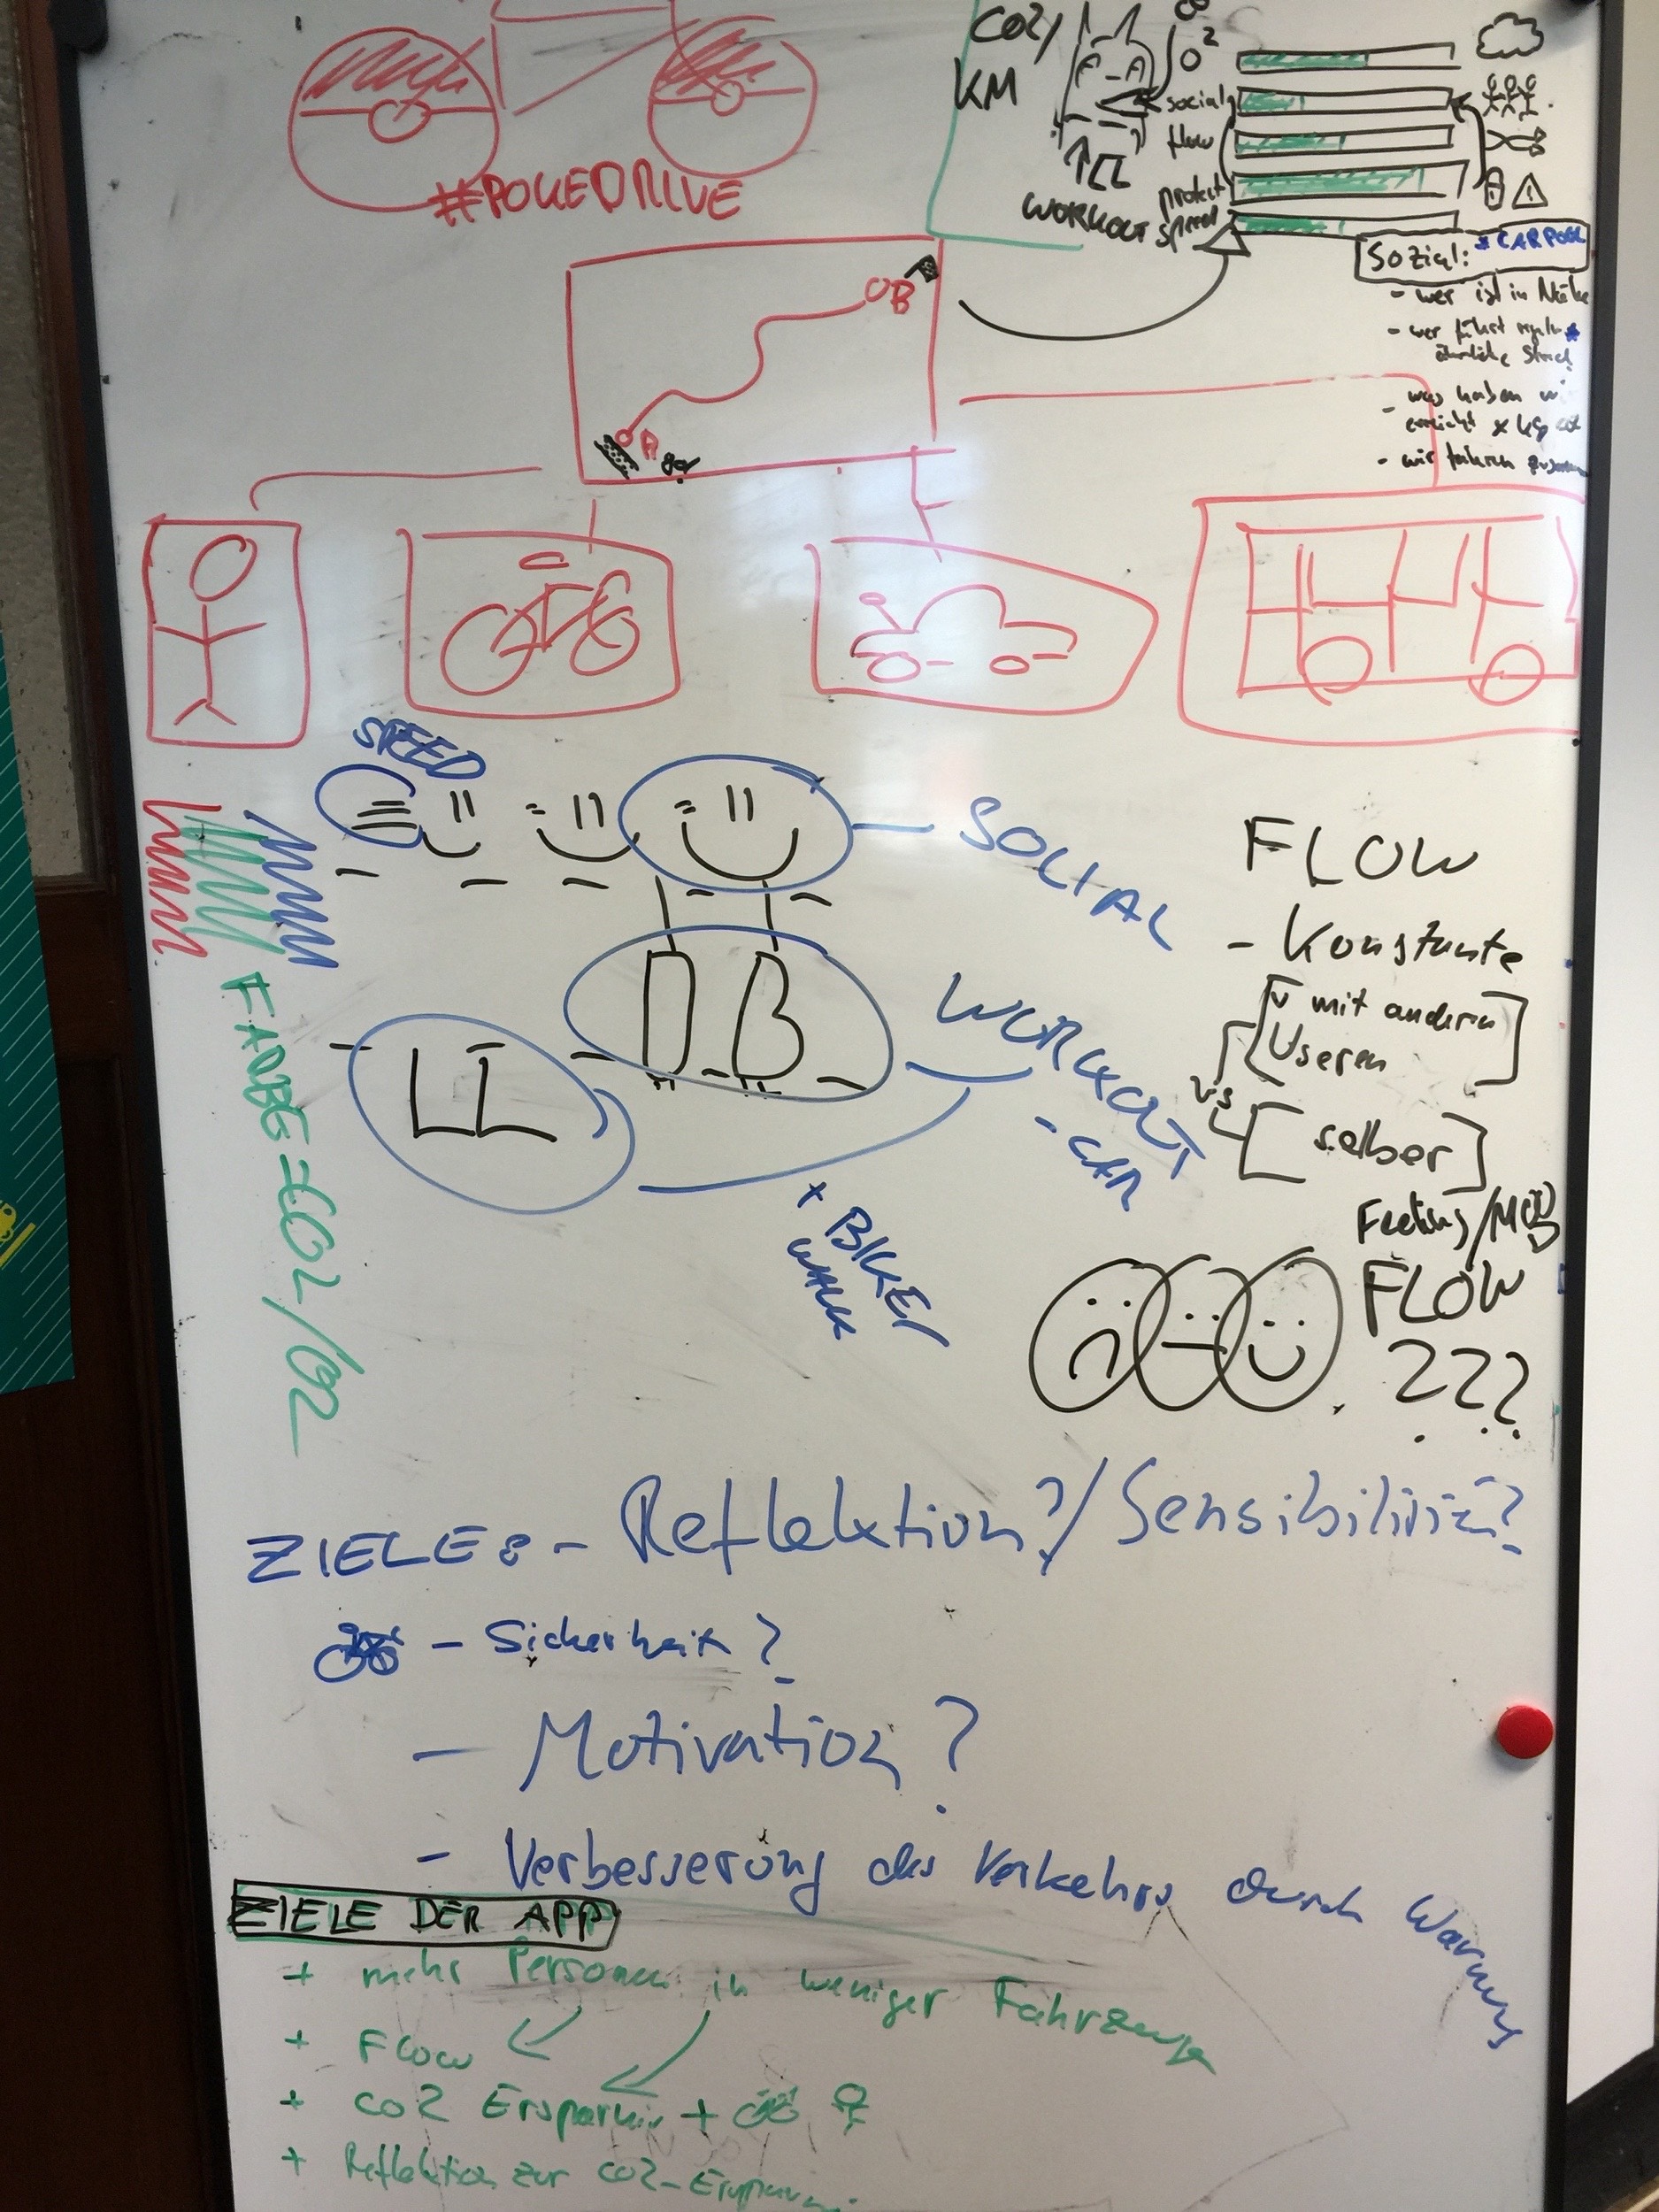 CO2/
KM
O²
social
flow
protect
speed
WORKOUT
#POKEDRIVE
Sozial: * CARPOOL
- wer ist in Nähe
- wer fährt
ähnliche
- was haben wi
erreicht x kg
- wir fahren
B
A
SPEED
SOCIAL
WORKOUT
- CAR
+ BIKE/
WALK
FARBE = CO2/O2
FLOW
- Konstante
mit andern
Useren
vs
selber
Feeling/
FLOW
???
ZIELE: - Reflektion?/Sensibilität?
- Sicherheit?
- Motivation?
- Verbesserung des Verkehrs durch Warnung
ZIELE DER APP
+ mehr Personen in weniger Fahrzeuge
+ Flow
+ CO2 Ersparnis +
+ Reflektion zur CO2-Ersparnis